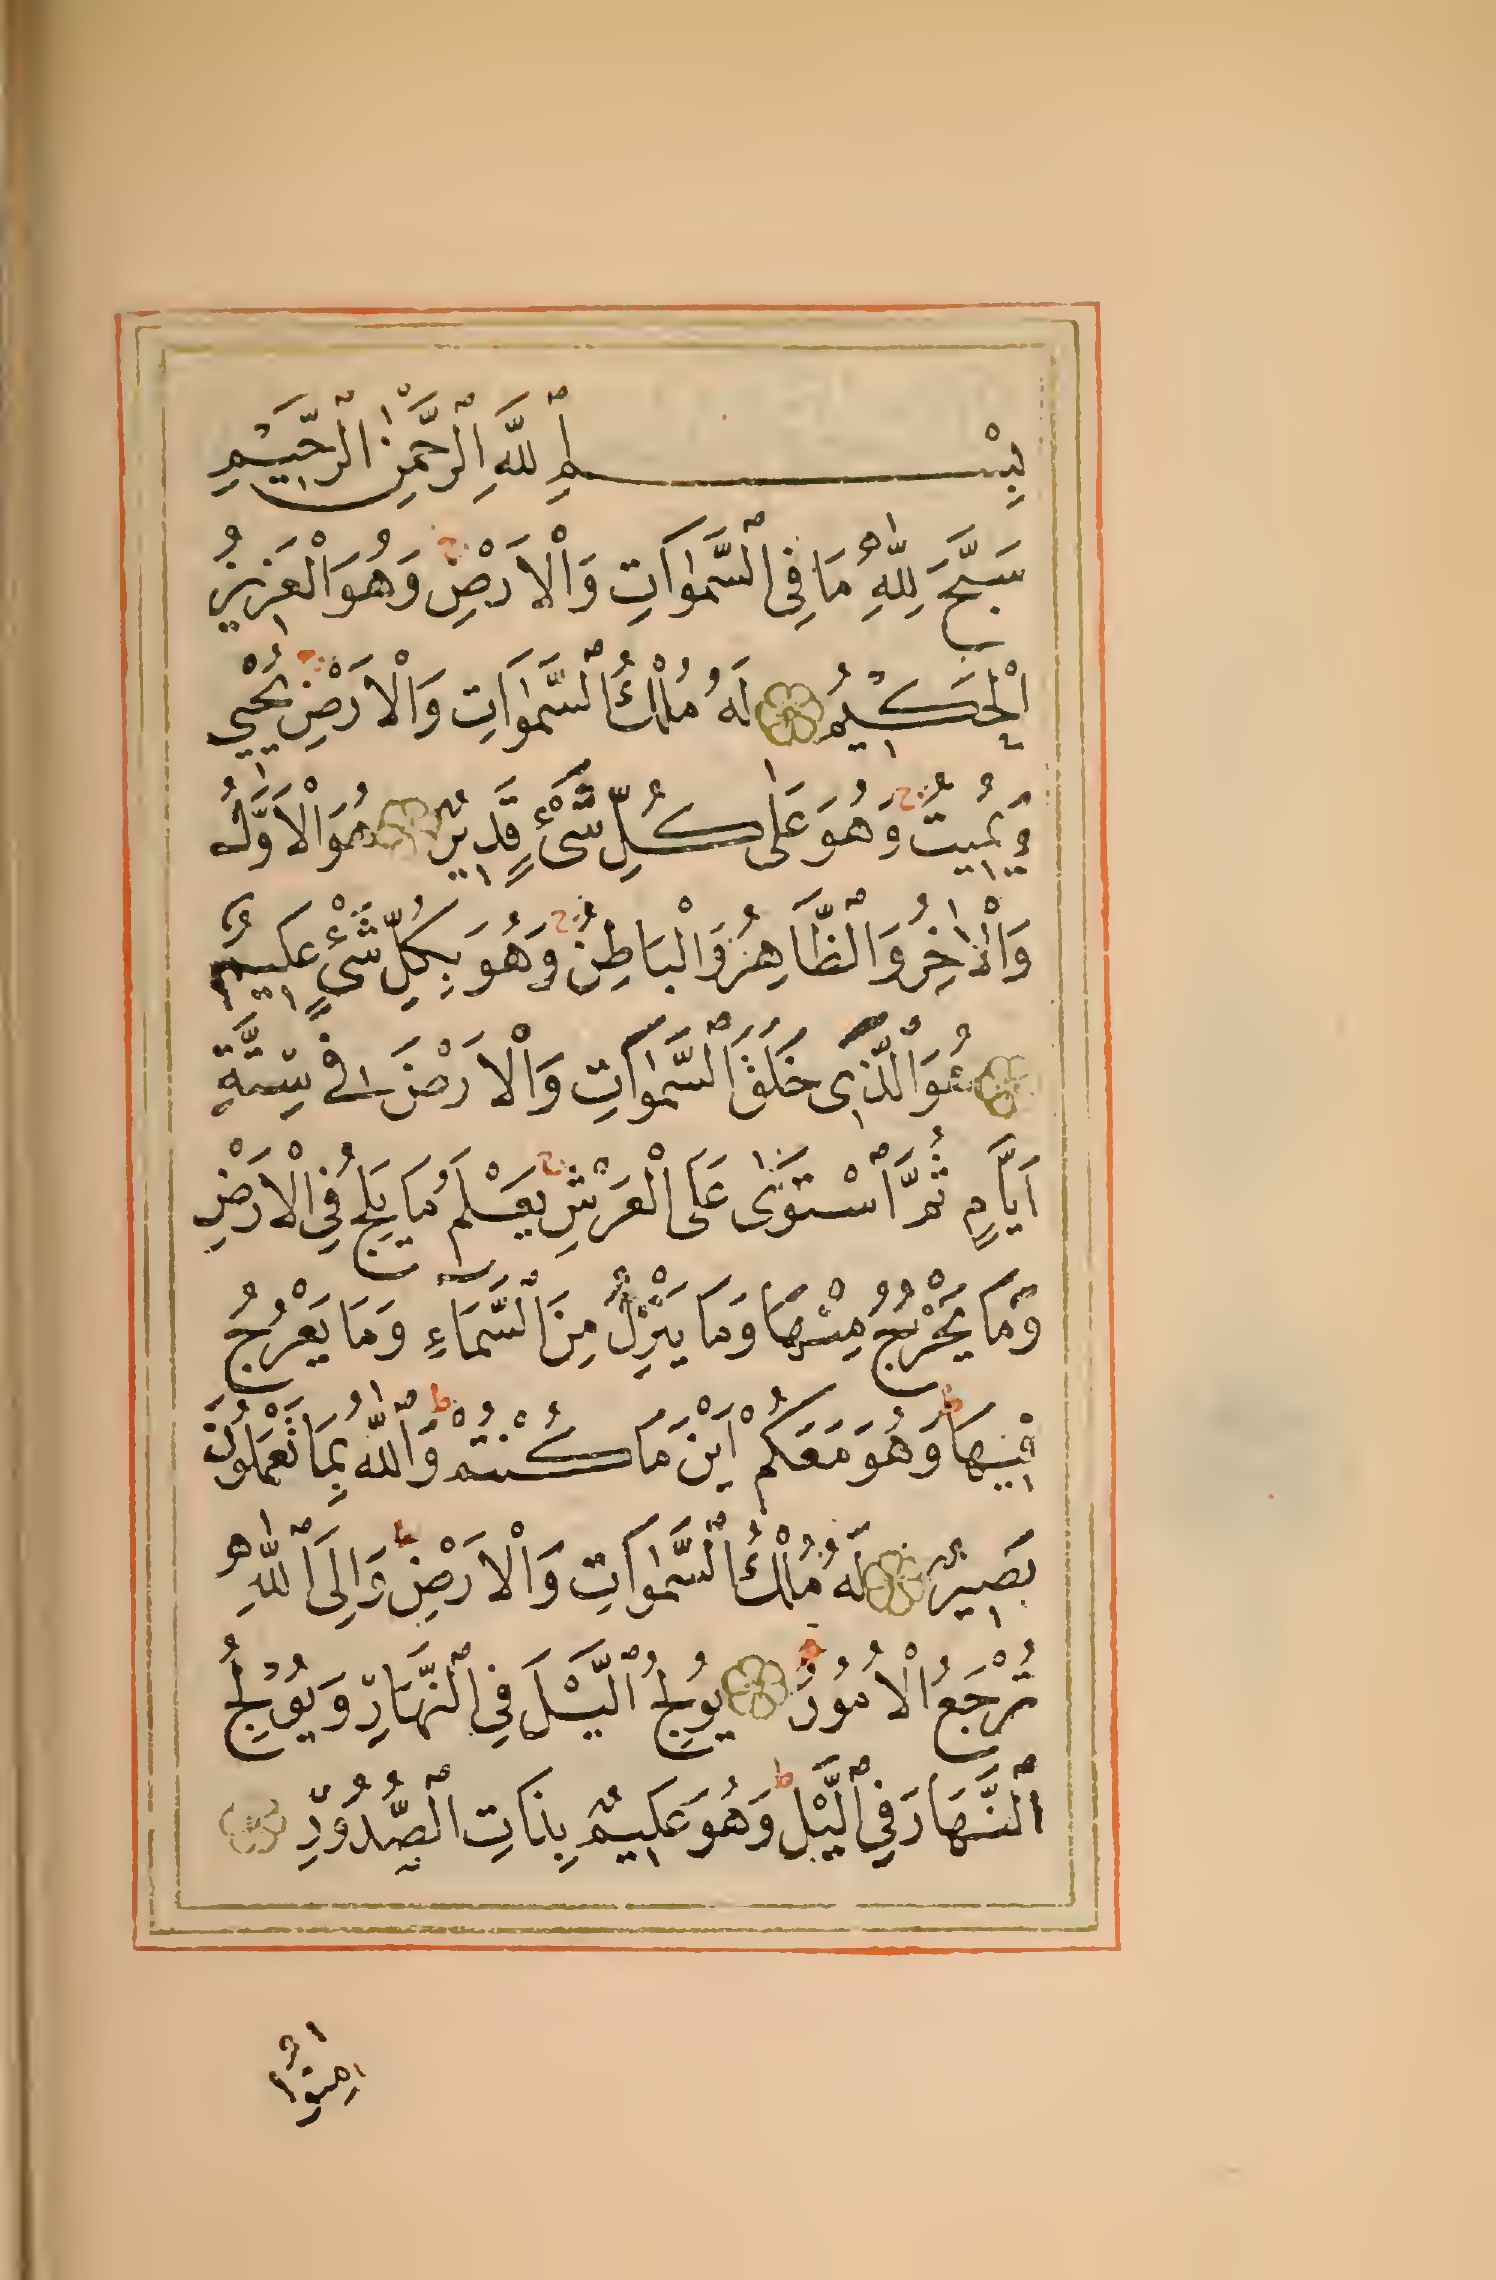 بِسْمِ اللهِ الرَّحْمٰنِ الرَّحِيمِ
سَبَّحَ لِلّٰهِ مَا فِى السَّمٰوَاتِ وَالْاَرْضِ ج وَهُوَ الْعَزِيزُ
الْحَكِيمُ لَهُ مُلْكُ السَّمٰوَاتِ وَالْاَرْضِ ج يُحْيِي
وَيُمِيتُ ج وَهُوَ عَلٰى كُلِّ شَىْءٍ قَدِيرٌ هُوَ الْاَوَّلُ
وَالْاٰخِرُ وَالظَّاهِرُ وَالْبَاطِنُ ج وَهُوَ بِكُلِّ شَىْءٍ عَلِيمٌ
هُوَ الَّذِى خَلَقَ السَّمٰوَاتِ وَالْاَرْضَ فِى سِتَّةِ
اَيَّامٍ ثُمَّ اسْتَوٰى عَلَى الْعَرْشِ ج يَعْلَمُ مَا يَلِجُ فِى الْاَرْضِ
وَمَا يَخْرُجُ مِنْهَا وَمَا يَنْزِلُ مِنَ السَّمَاءِ وَمَا يَعْرُجُ
فِيهَا ط وَهُوَ مَعَكُمْ اَيْنَ مَا كُنْتُمْ ط وَاللّٰهُ بِمَا تَعْمَلُونَ
بَصِيرٌ لَهُ مُلْكُ السَّمٰوَاتِ وَالْاَرْضِ ط وَاِلَى اللّٰهِ
تُرْجَعُ الْاُمُورُ يُولِجُ الَّيْلَ فِى النَّهَارِ وَيُولِجُ
النَّهَارَ فِى الَّيْلِ ط وَهُوَ عَلِيمٌ بِذَاتِ الصُّدُورِ
اٰمِنُوا